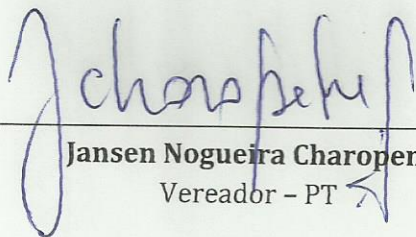 Jansen Nogueira Charopen
Vereador – PT